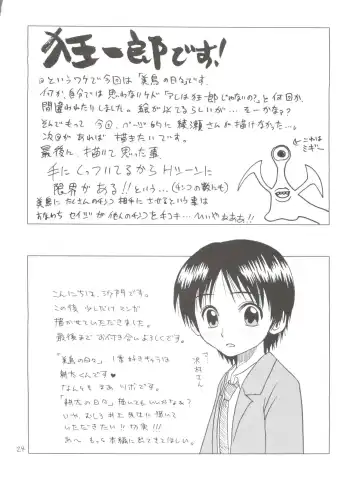 狂一郎です!
というワケで今回は「美鳥の日々」です。
何か、自分では思わないケド「アレは狂一郎じゃないの?」と何回か
間違われたりしました。絵が似てるらしいが…。そーかなぁ?
そんでもって今回、ページ的に綾瀬さんが描けなかった…。
次回があれば描きたいです。
最後に、描いて思った事、
手にくっついてるからHシーンに
限界がある!!という…
美鳥にたくさんの
相手にさせるという事は
すなわちセイジが他人の
これは
ミギー
こんにちは、沙門です。
この後少しだけマンガ
描かせていただきました。
最後までお付き合いよろしくです。
「美鳥の日々」1番好きキャラは
耕太くんです♥
なんともまあツボです。
「耕太の日々」描いてもいいかなぁ?
いや、むしろ井上先生に描いて
いただきたい!!切実!!
あ〜もっと本編に出てきてほしい。
沢村さん
24